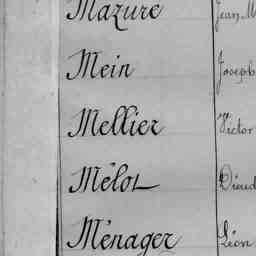 Mazure Jean M
Mein Joseph
Mellier Victor
Mélot Dieud
Ménager Léon